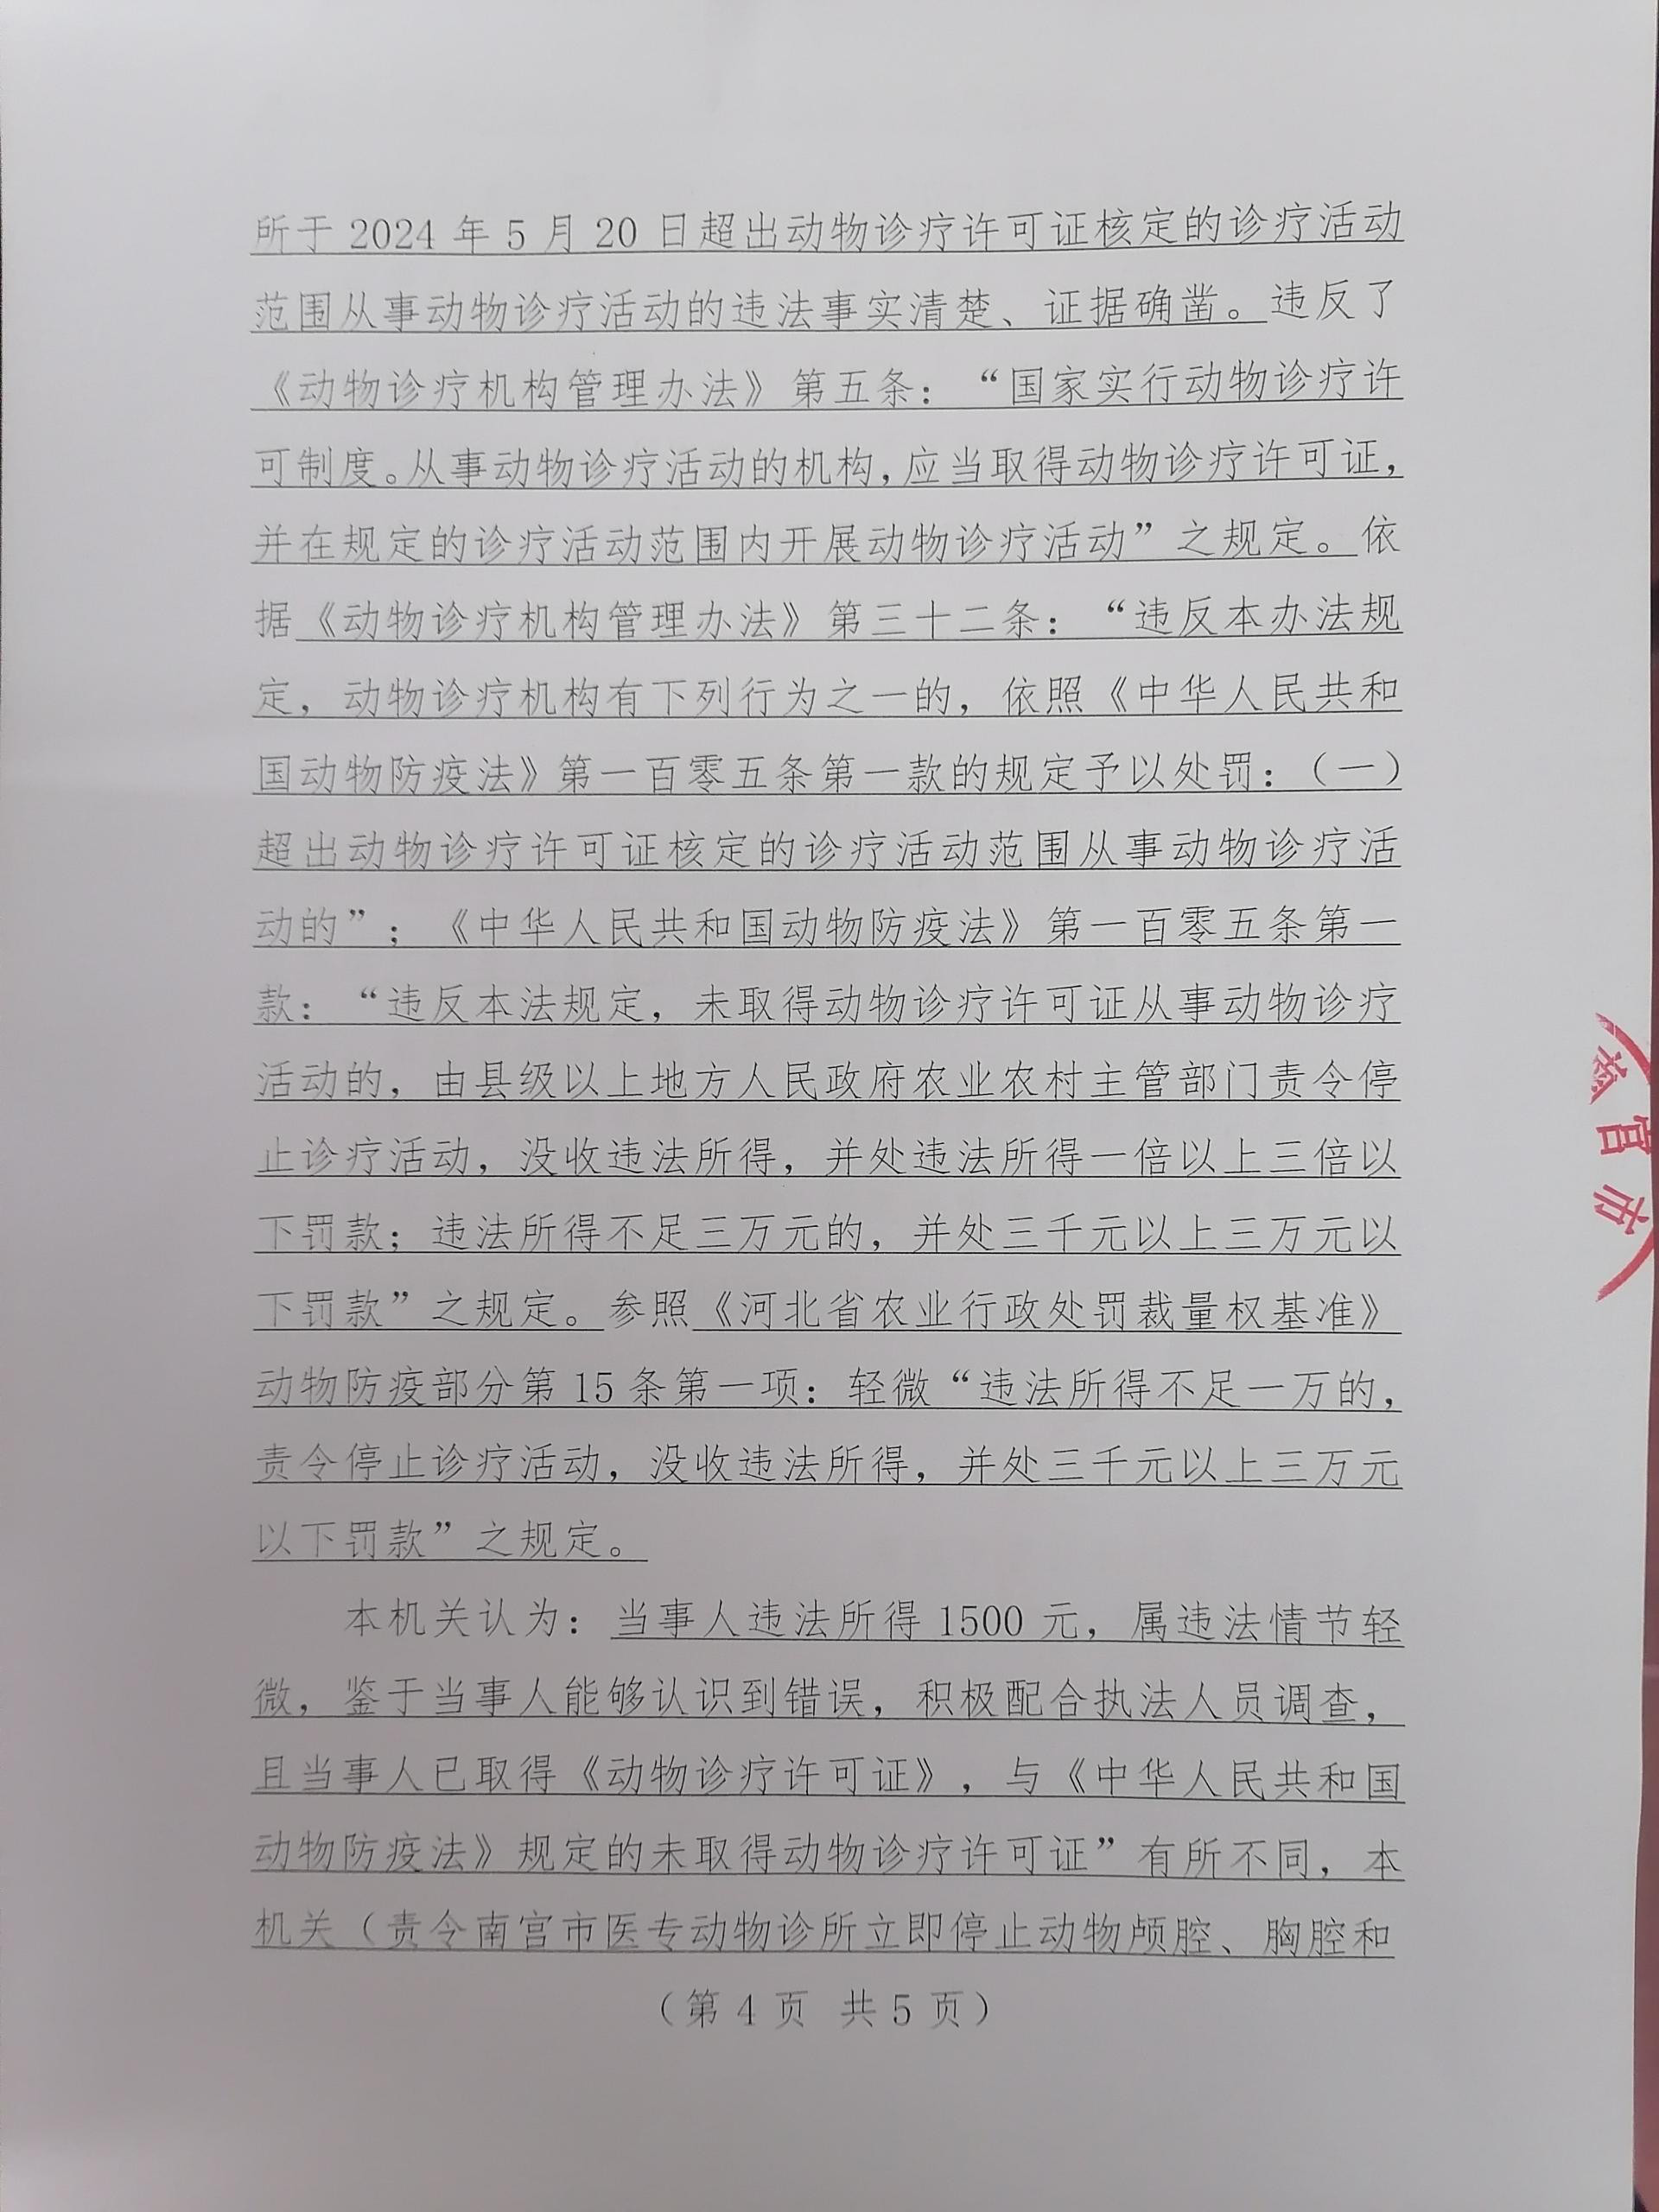 所于 2024 年 5 月 20 日超出动物诊疗许可证核定的诊疗活动
范围从事动物诊疗活动的违法事实清楚、证据确凿。违反了
《动物诊疗机构管理办法》第五条：“国家实行动物诊疗许
可制度。从事动物诊疗活动的机构，应当取得动物诊疗许可证，
并在规定的诊疗活动范围内开展动物诊疗活动”之规定。依
据《动物诊疗机构管理办法》第三十二条：“违反本办法规
定，动物诊疗机构有下列行为之一的，依照《中华人民共和
国动物防疫法》第一百零五条第一款的规定予以处罚：（一）
超出动物诊疗许可证核定的诊疗活动范围从事动物诊疗活
动的”；《中华人民共和国动物防疫法》第一百零五条第一
款：“违反本法规定，未取得动物诊疗许可证从事动物诊疗
活动的，由县级以上地方人民政府农业农村主管部门责令停
止诊疗活动，没收违法所得，并处违法所得一倍以上三倍以
下罚款；违法所得不足三万元的，并处三千元以上三万元以
下罚款”之规定。参照《河北省农业行政处罚裁量权基准》
动物防疫部分第 15 条第一项：轻微“违法所得不足一万的，
责令停止诊疗活动，没收违法所得，并处三千元以上三万元
以下罚款”之规定。
本机关认为：当事人违法所得 1500 元，属违法情节轻
微，鉴于当事人能够认识到错误，积极配合执法人员调查，
且当事人已取得《动物诊疗许可证》，与《中华人民共和国
动物防疫法》规定的未取得动物诊疗许可证”有所不同，本
机关（责令南宫市医专动物诊所立即停止动物颅腔、胸腔和
（第 4 页 共 5 页）
宫市